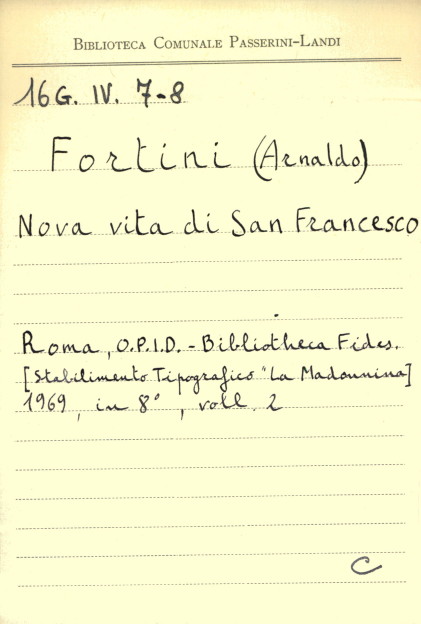 BIBLIOTECA COMUNALE PASSERINI-LANDI
16 G. IV. 7-8
Fortini (Arnaldo)
Nova vita di San Francesco
Roma, O.P.I.D. - Bibliotheca Fides.
[Stabilimento Tipografico "La Madonnina]
1969, in 8°, voll. 2
C